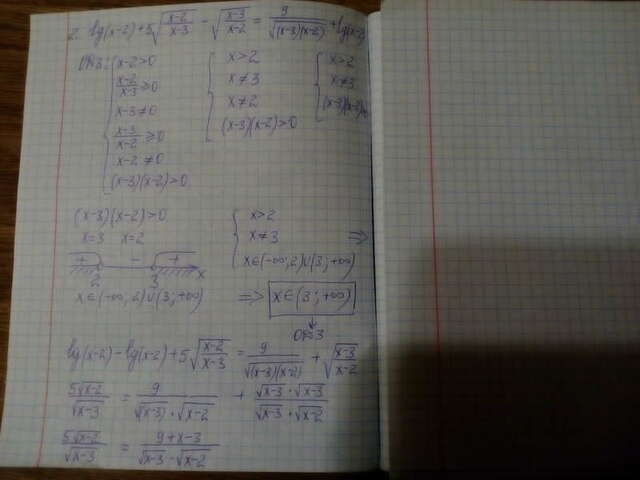 2. lg(x-2)+5√((x-2)/(x-3)) - √((x-3)/(x-2)) = 9/√((x-3)(x-2)) + lg(x-2)
ОДЗ: { x-2>0 { x>2 { x>2
(x-2)/(x-3) ≥0 x≠3 x≠3
x-3≠0 x≠2 (x-3)(x-2)>0
(x-3)/(x-2) ≥0 (x-3)(x-2)>0
x-2≠0
(x-3)(x-2)>0
(x-3)(x-2)>0 { x>2
x=3 x=2 x≠3 =>
+ - + x x∈(-∞;2)∪(3;+∞)
2 3
x∈(-∞;2)∪(3;+∞) => x∈(3;+∞)
ОДЗ
lg(x-2)-lg(x-2)+5√((x-2)/(x-3)) = 9/√((x-3)(x-2)) + √((x-3)/(x-2))
5√(x-2)/√(x-3) = 9/(√(x-3)·√(x-2)) + (√(x-3)·√(x-3))/(√(x-3)·√(x-2))
5√(x-2)/√(x-3) = (9+x-3)/(√(x-3)·√(x-2))